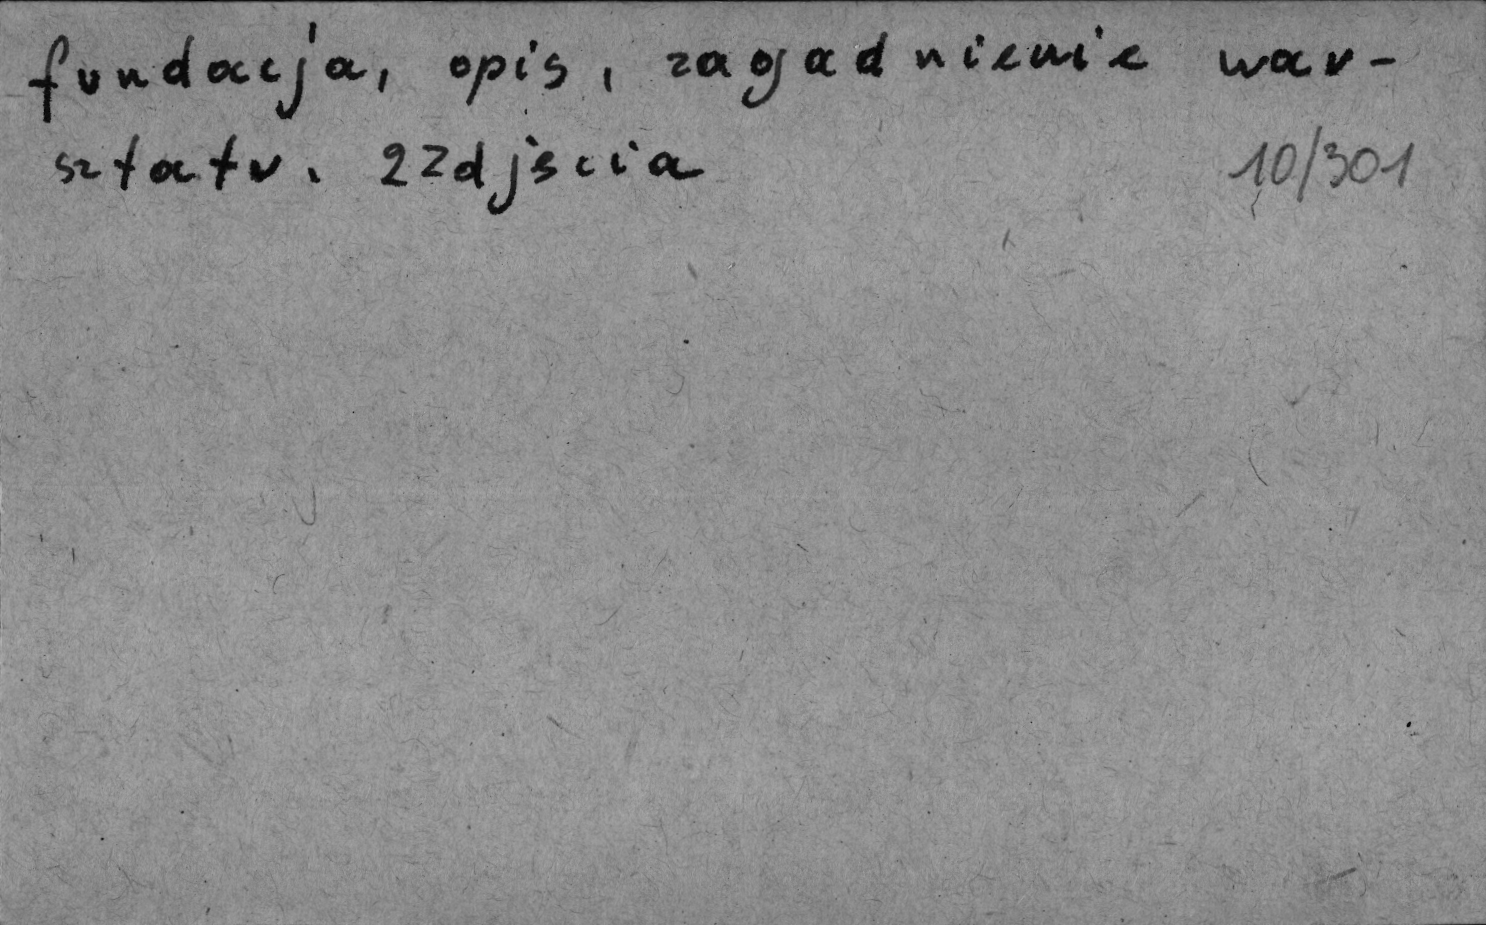 fundacja, opis, zagadnienie war-
sztatu. 2 zdjścia
10/301